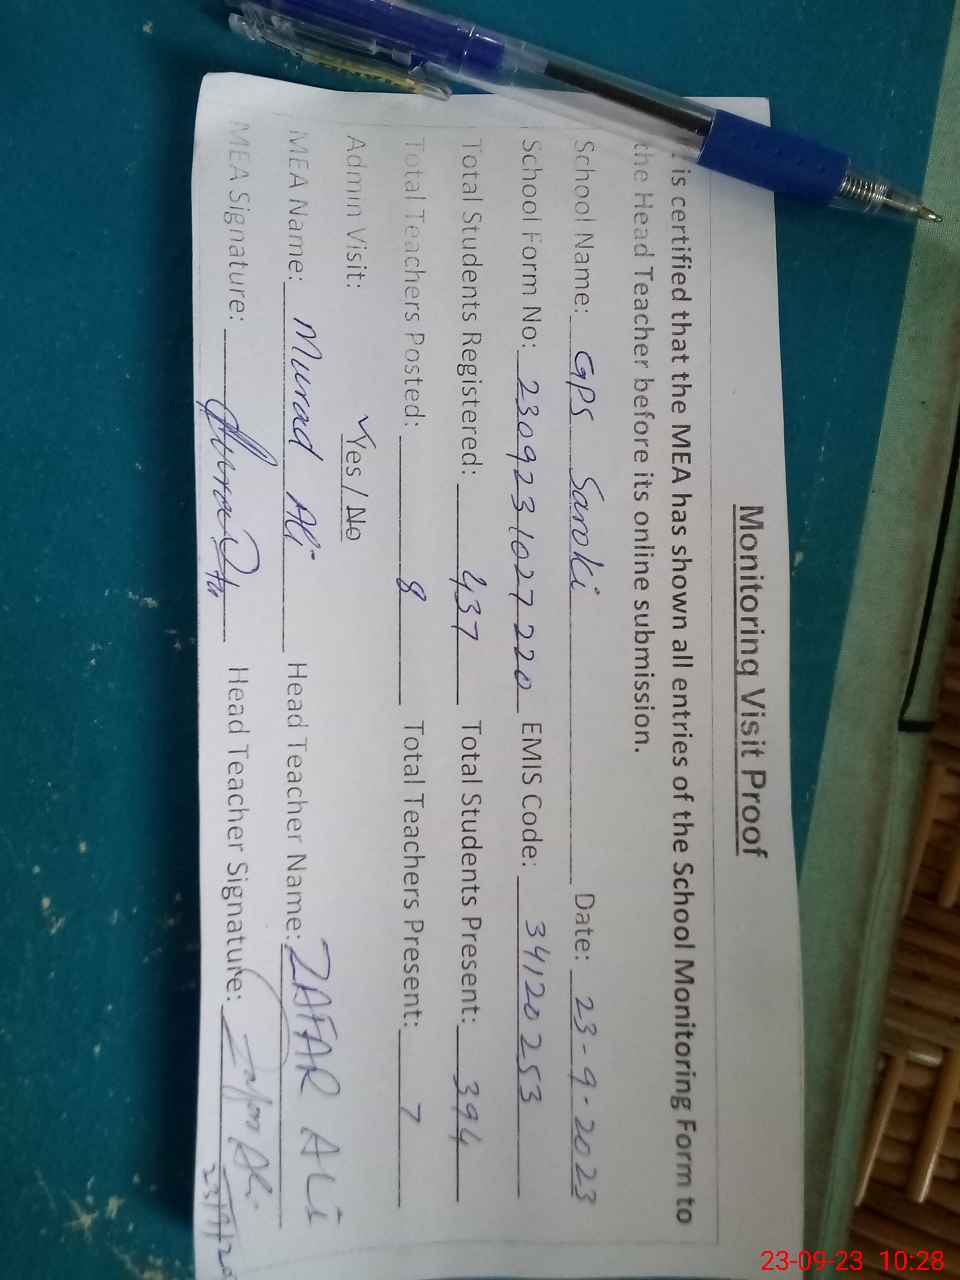 Monitoring Visit Proof
is certified that the MEA has shown all entries of the School Monitoring Form to
the Head Teacher before its online submission.
School Name: GPS Saroki Date: 23-9-2023
School Form No: 2309231027220 EMIS Code: 34120253
Total Students Registered: 437 Total Students Present: 394
Total Teachers Posted: 8 Total Teachers Present: 7
Admin Visit: Yes / No
MEA Name: Murad Ali Head Teacher Name: ZAFAR ALi
MEA Signature: Head Teacher Signature: Zafar Ali
23-09-23 10:28